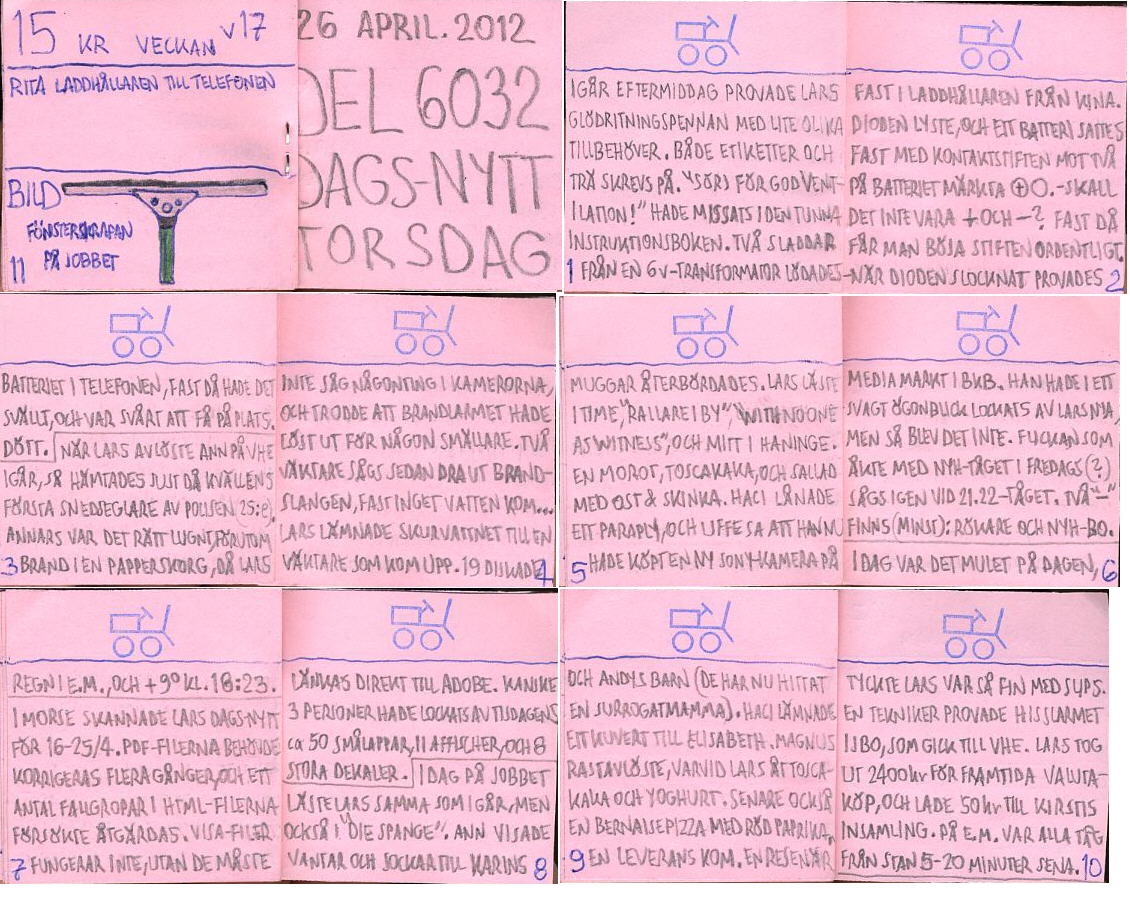 15 KR VECKAN v17
RITA LADDHÅLLAREN TILL TELEFONEN
BILD
FÖNSTERSKRAPAN
PÅ JOBBET
11
26 APRIL. 2012
DEL 6032
DAGS-NYTT
TORSDAG
IGÅR EFTERMIDDAG PROVADE LARS
GLÖDRITNINGSPENNAN MED LITE OLIKA
TILLBEHÖVER. BÅDE ETIKETTER OCH
TRÄ SKREVS PÅ. "SÖRJ FÖR GOD VENT-
ILATION!" HADE MISSATS I DEN TUNNA
INSTRUKTIONSBOKEN. TVÅ SLADDAR
1 FRÅN EN 6V-TRANSFORMATOR LÖDADES
FAST I LADDHÅLLAREN FRÅN KINA.
DIODEN LYSTE, OCH ETT BATTERI SATTES
FAST MED KONTAKTSTIFTEN MOT TVÅ
PÅ BATTERIET MÄRKTA ⊕O.-SKALL
DET INTE VARA + OCH -? FAST DÅ
FÅR MAN BÖJA STIFTEN ORDENTLIGT.
-NÄR DIODEN SLOCKNAT PROVADES 2
BATTERIET I TELEFONEN, FAST DÅ HADE DET
SVÄLLT, OCH VAR SVÅRT ATT FÅ PÅ PLATS.
DÖTT. NÄR LARS AVLÖSTE ANN PÅ VHE
IGÅR, SÅ HÄMTADES JUST DÅ KVÄLLENS
FÖRSTA SNEDSEGLARE AV POLISEN (25:e).
ANNARS VAR DET RÄTT LUGNT, FÖRUTOM
3 BRAND I EN PAPPERSKORG, DÅ LARS
INTE SÅG NÅGONTING I KAMERORNA,
OCH TRODDE ATT BRANDLARMET HADE
LÖST UT FÖR NÅGON SMÄLLARE. TVÅ
VÄKTARE SÅGS SEDAN DRA UT BRAND-
SLANGEN, FAST INGET VATTEN KOM...
LARS LÄMNADE SKURVATTNET TILL EN
VÄKTARE SOM KOM UPP. 19 DISKADE 4
MUGGAR ÅTERBÖRDADES. LARS LÄSTE
I TIME, "RALLARE I BY", "WITH NO ONE
AS WITNESS", OCH MITT I HANINGE.
EN MOROT, TOSCAKAKA, OCH SALLAD
MED OST & SKINKA. HACI LÅNADE
ETT PARAPLY, OCH UFFE SA ATT HAN NU
5 HADE KÖPT EN NY SONY-KAMERA PÅ
MEDIA MARKT I BKB. HAN HADE I ETT
SVAGT ÖGONBLICK LOCKATS AV LARS NYA,
MEN SÅ BLEV DET INTE. FLICKAN SOM
ÅKTE MED NYH-TÅGET I FREDAGS (?)
SÅGS IGEN VID 21.22-TÅGET. TVÅ "—"
FINNS (MINST): RÖKARE OCH NYH-BO.
I DAG VAR DET MULET PÅ DAGEN, 6
REGN I E.M., OCH +9° KL. 18:23.
I MORSE SKANNADE LARS DAGS-NYTT
FÖR 16-25/4. PDF-FILERNA BEHÖVDE
KORRIGERAS FLERA GÅNGER, OCH ETT
ANTAL FALLGROPAR I HTML-FILERNA
FÖRSÖKTE ÅTGÄRDAS. VISA-FILER
7 FUNGERAR INTE, UTAN DE MÅSTE
LÄNKAS DIREKT TILL ADOBE. KANSKE
3 PERSONER HADE LOCKATS AV TISDAGENS
ca 50 SMÅLAPPAR, 11 AFFISCHER, OCH 8
STORA DEKALER. I DAG PÅ JOBBET
LÄSTE LARS SAMMA SOM IGÅR, MEN
OCKSÅ I "DIE SPANGE". ANN VISADE
VANTAR OCH SOCKAR TILL KARINS 8
OCH ANDYS BARN (DE HAR NU HITTAT
EN SURROGATMAMMA). HACI LÄMNADE
ETT KUVERT TILL ELISABETH. MAGNUS
RASTAVLÖSTE, VARVID LARS ÅT TOSCA-
KAKA OCH YOGHURT. SENARE OCKSÅ
EN BERNAISEPIZZA MED RÖD PAPRIKA,
9 EN LEVERANS KOM. EN RESENÄR
TYCKTE LARS VAR SÅ FIN MED SLIPS.
EN TEKNIKER PROVADE HISSLARMET
I JBO, SOM GICK TILL VHE. LARS TOG
UT 2400 kr FÖR FRAMTIDA VALUTA-
KÖP, OCH LADE 50 kr TILL KIRSTIS
INSAMLING. PÅ E.M. VAR ALLA TÅG
FRÅN STAN 5-20 MINUTER SENA. 10